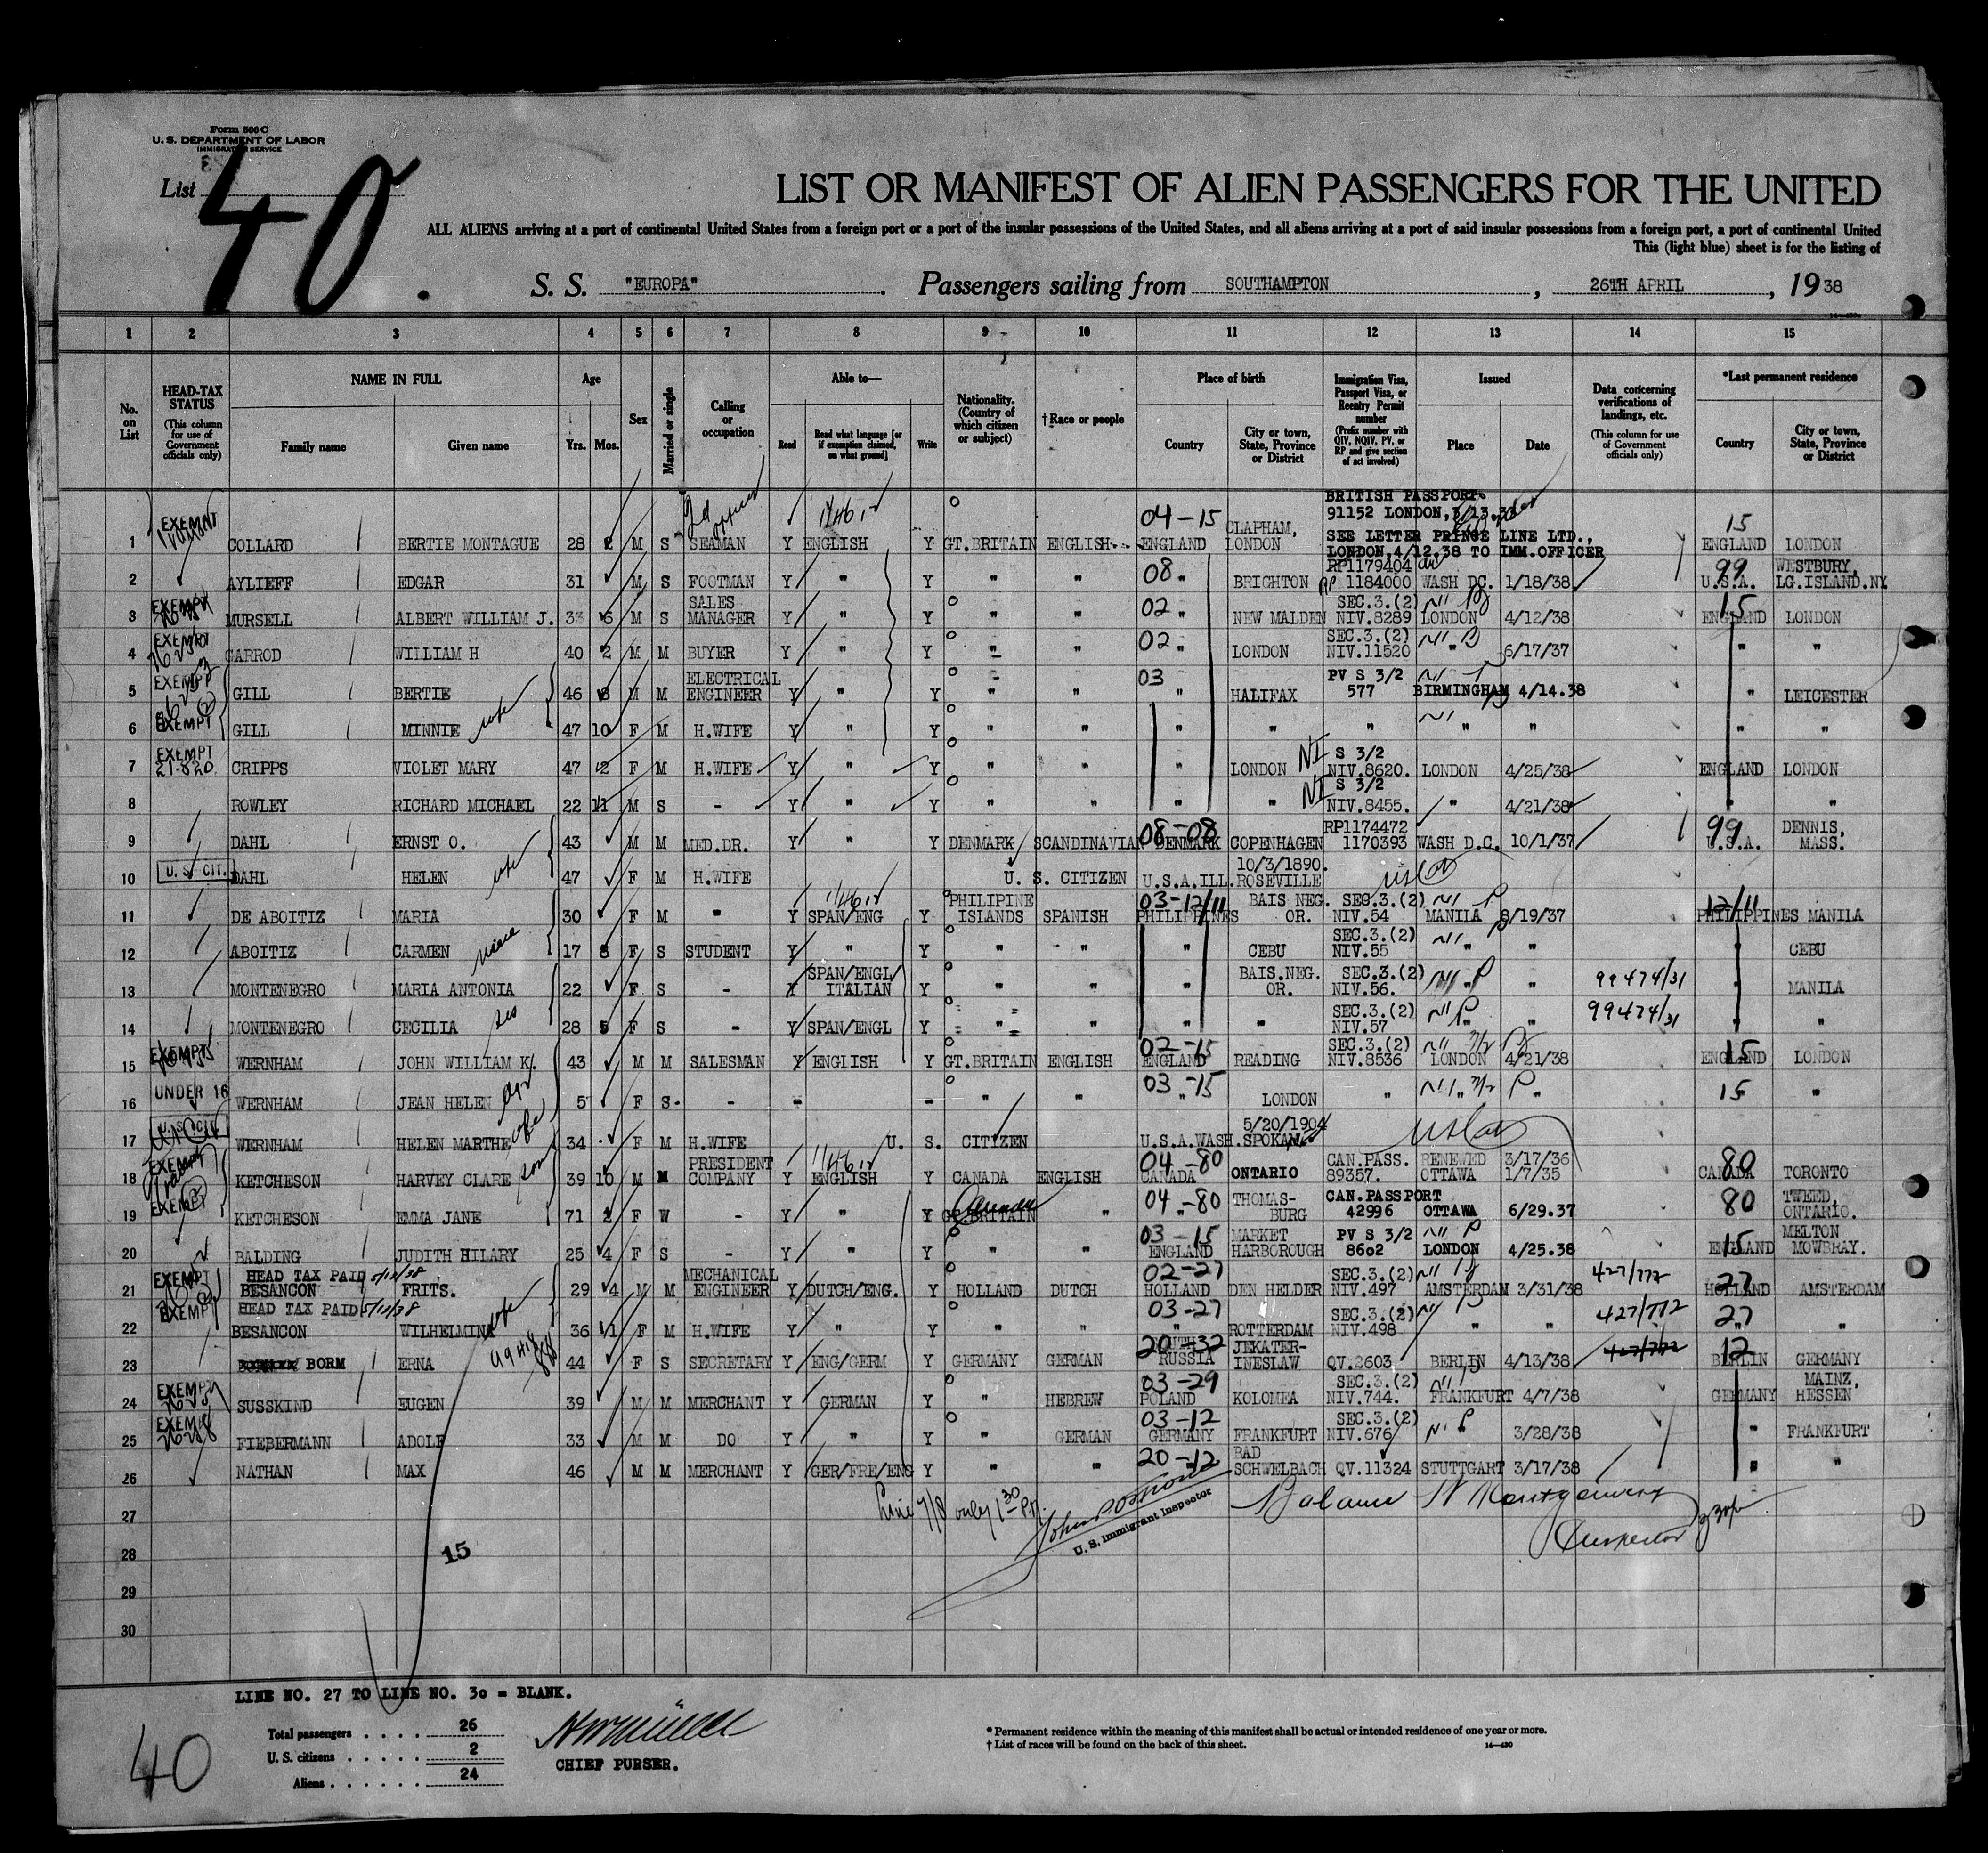 Form 500 C
U. S. DEPARTMENT OF LABOR
IMMIGRATION SERVICE
List 40.
LIST OR MANIFEST OF ALIEN PASSENGERS FOR THE UNITED
ALL ALIENS arriving at a port of continental United States from a foreign port or a port of the insular possessions of the United States, and all aliens arriving at a port of said insular possessions from a foreign port, a port of continental United
This (light blue) sheet is for the listing of
S. S. "EUROPA" Passengers sailing from SOUTHAMPTON, 26TH APRIL, 1938
1 2 3 4 5 6 7 8 9 10 11 12 13 14 15
No. on List
HEAD-TAX STATUS (This column for use of Government officials only)
NAME IN FULL Family name Given name
Age Yrs. Mos.
Sex
Married or single
Calling or occupation
Able to— Read Read what language [or if exemption claimed, on what ground] Write
Nationality. (Country of which citizen or subject)
† Race or people
Place of birth Country City or town, State, Province or District
Immigration Visa, Passport Visa, or Reentry Permit number (Prefix number with QIV, NQIV, PV, or RP and give section of act involved)
Issued Place Date
Data concerning verifications of landings, etc. (This column for use of Government officials only)
*Last permanent residence Country City or town, State, Province or District
1 EXEMPT COLLARD BERTIE MONTAGUE 28 2 M S 2d officer SEAMAN Y ENGLISH Y GT.BRITAIN ENGLISH 04-15 ENGLAND CLAPHAM, LONDON BRITISH PASSPORT 91152 LONDON, SEE LETTER PRINCE LINE LTD., LONDON,4/12.38 TO IMM.OFFICER 15 ENGLAND LONDON
2 AYLIEFF EDGAR 31 M S FOOTMAN Y " Y " " 08 " BRIGHTON RP1179404 RP 1184000 WASH DC. 1/18/38 99 U.S.A. WESTBURY, LG.ISLAND.NY
3 EXEMPT MURSELL ALBERT WILLIAM J. 33 6 M S SALES MANAGER Y " Y " " 02 " NEW MALDEN SEC.3.(2) NIV.8289 LONDON 4/12/38 15 ENGLAND LONDON
4 EXEMPT GARROD WILLIAM H 40 2 M M BUYER Y " Y " " 02 " LONDON SEC.3.(2) NIV.11520 " 6/17/37 " "
5 EXEMPT GILL BERTIE 46 8 M M ELECTRICAL ENGINEER Y " Y " " 03 " HALIFAX PV S 3/2 577 BIRMINGHAM 4/14.38 " LEICESTER
6 EXEMPT GILL MINNIE wife 47 10 F M H.WIFE Y " Y " " " " " " " " "
7 EXEMPT 21-820 CRIPPS VIOLET MARY 47 2 F M H.WIFE Y " Y " " " LONDON NI S 3/2 NIV.8620. LONDON 4/25/38 ENGLAND LONDON
8 ROWLEY RICHARD MICHAEL 22 11 M S - Y " Y " " " " NI S 3/2 NIV.8455. " 4/21/38 " "
9 DAHL ERNST O. 43 M M MED.DR. Y " Y DENMARK SCANDINAVIAN 08-08 DENMARK COPENHAGEN RP1174472 1170393 WASH D.C. 10/1/37 99 U.S.A. DENNIS, MASS.
10 U. S. CIT. DAHL HELEN wife 47 F M H.WIFE U. S. CITIZEN U.S.A.ILL. 10/3/1890. ROSEVILLE
11 DE ABOITIZ MARIA 30 F M " Y SPAN/ENG Y PHILIPINE ISLANDS SPANISH 03-12/11 PHILIPPINES BAIS NEG. OR. SEC.3.(2) NIV.54 MANILA 8/19/37 12/11 PHILIPPINES MANILA
12 ABOITIZ CARMEN niece 17 8 F S STUDENT Y " Y " " " CEBU SEC.3.(2) NIV.55 " " " CEBU
13 MONTENEGRO MARIA ANTONIA 22 F S - Y SPAN/ENGL ITALIAN Y " " " BAIS.NEG. OR. SEC.3.(2) NIV.56. " " 99474/31 " MANILA
14 MONTENEGRO CECILIA sis 28 5 F S - Y SPAN/ENGL Y " " " " SEC.3.(2) NIV.57 " " 99474/31 " "
15 EXEMPT WERNHAM JOHN WILLIAM K. 43 M M SALESMAN Y ENGLISH Y GT.BRITAIN ENGLISH 02-15 ENGLAND READING SEC.3.(2) NIV.8536 LONDON 4/21/38 15 ENGLAND LONDON
16 UNDER 16 WERNHAM JEAN HELEN 5 F S - - - " " 03-15 " LONDON " " " 15 "
17 U.S. CIT WERNHAM HELEN MARTHE wife 34 F M H.WIFE U. S. CITIZEN U.S.A.WASH. 5/20/1904 SPOKANE
18 EXEMPT KETCHESON HARVEY CLARE son 39 10 M M PRESIDENT COMPANY Y ENGLISH Y CANADA ENGLISH 04-80 CANADA ONTARIO CAN.PASS. 89357. RENEWED OTTAWA 3/17/36 1/7/35 80 CANADA TORONTO
19 EXEMPT KETCHESON EMMA JANE 71 2 F W - Y " Y GT.BRITAIN Canada " 04-80 " THOMAS-BURG CAN.PASSPORT 42996 OTTAWA 6/29.37 80 TWEED, ONTARIO.
20 BALDING JUDITH HILARY 25 4 F S - Y " Y " " 03-15 ENGLAND MARKET HARBOROUGH PV S 3/2 8602 LONDON 4/25.38 15 ENGLAND MELTON MOWBRAY.
21 EXEMPT HEAD TAX PAID 5/12/38 BESANCON FRITS. 29 4 M M MECHANICAL ENGINEER Y DUTCH/ENG. Y HOLLAND DUTCH 02-27 HOLLAND DEN HELDER SEC.3.(2) NIV.497 AMSTERDAM 3/31/38 427/772 27 HOLLAND AMSTERDAM
22 EXEMPT HEAD TAX PAID 5/12/38 BESANCON WILHELMINA wife 36 11 F M H.WIFE Y " Y " " 03-27 " ROTTERDAM SEC.3.(2) NIV.498 " " 427/772 27 " "
23 BORM ERNA 44 F S SECRETARY Y ENG/GERM Y GERMANY GERMAN 20-32 RUSSIA JEKATER-INESLAW QV.2603 BERLIN 4/13/38 427/772 12 BERLIN GERMANY
24 EXEMPT SUSSKIND EUGEN 39 M M MERCHANT Y GERMAN Y " HEBREW 03-29 POLAND KOLOMEA SEC.3.(2) NIV.744. FRANKFURT 4/7/38 GERMANY MAINZ, HESSEN
25 EXEMPT FIEBERMANN ADOLF 33 M M DO Y " Y " GERMAN 03-12 GERMANY FRANKFURT SEC.3.(2) NIV.676 3/28/38 " FRANKFURT
26 NATHAN MAX 46 M M MERCHANT Y GER/FRE/ENG Y " " 20-12 " BAD SCHWELBACH QV.11324 STUTTGART 3/17/38 " "
27 Line 7/8 only 1 30 PM. U. S. Immigrant Inspector Balance Montgomery Inspector
28 15
29
30
LINE NO. 27 TO LINE NO. 30 = BLANK.
Total passengers . . . . . 26
U. S. citizens . . . . . 2
Aliens . . . . . . 24
CHIEF PURSER.
40
* Permanent residence within the meaning of this manifest shall be actual or intended residence of one year or more.
† List of races will be found on the back of this sheet.
14—430